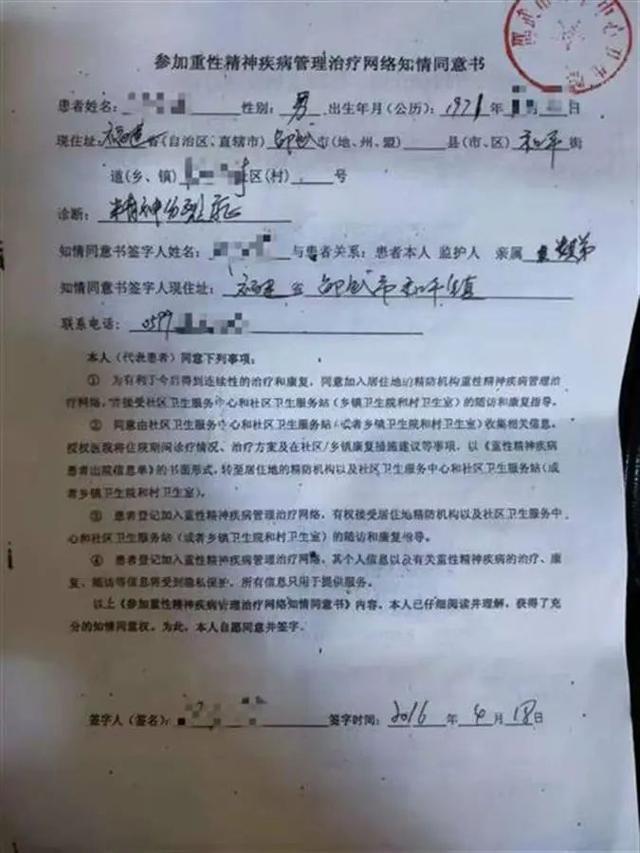 参加重性精神疾病管理治疗网络知情同意书
患者姓名： 性别：男 出生年月（公历）：1971年 日
现住址：福建省（自治区、直辖市）邵武市（地、州、盟） 县（市、区）和平街
道（乡、镇） 社区（村） 号
诊断：精神分裂症
知情同意书签字人姓名： 与患者关系：患者本人 监护人 亲属
知情同意书签字人现住址：福建省邵武市和平镇
联系电话：0599
本人（代表患者）同意下列事项：
① 为有利于今后得到连续性的治疗和康复，同意加入居住地的精防机构重性精神疾病管理治
疗网络，并接受社区卫生服务中心和社区卫生服务站（乡镇卫生院和村卫生室）的随访和康复指导。
② 同意由社区卫生服务中心和社区卫生服务站（或者乡镇卫生院和村卫生室）收集相关信息。
授权医院将住院期间诊疗情况、治疗方案及在社区/乡镇康复措施建议等事项，以《重性精神疾病
患者出院信息单》的书面形式，转至居住地的精防机构以及社区卫生服务中心和社区卫生服务站（或
者乡镇卫生院和村卫生室）。
③ 患者登记加入重性精神疾病管理治疗网络，有权接受居住地精防机构以及社区卫生服务中
心和社区卫生服务站（或者乡镇卫生院和村卫生室）的随访和康复指导。
④ 患者登记加入重性精神疾病管理治疗网络，其个人信息以及有关重性精神疾病的治疗、康
复、随访等信息将受到隐私保护，所有信息只用于提供服务。
以上《参加重性精神疾病管理治疗网络知情同意书》内容，本人已仔细阅读并理解，获得了充
分的知情同意权。为此，本人自愿同意并签字。
签字人（签名）： 签字时间：2016年4月18日